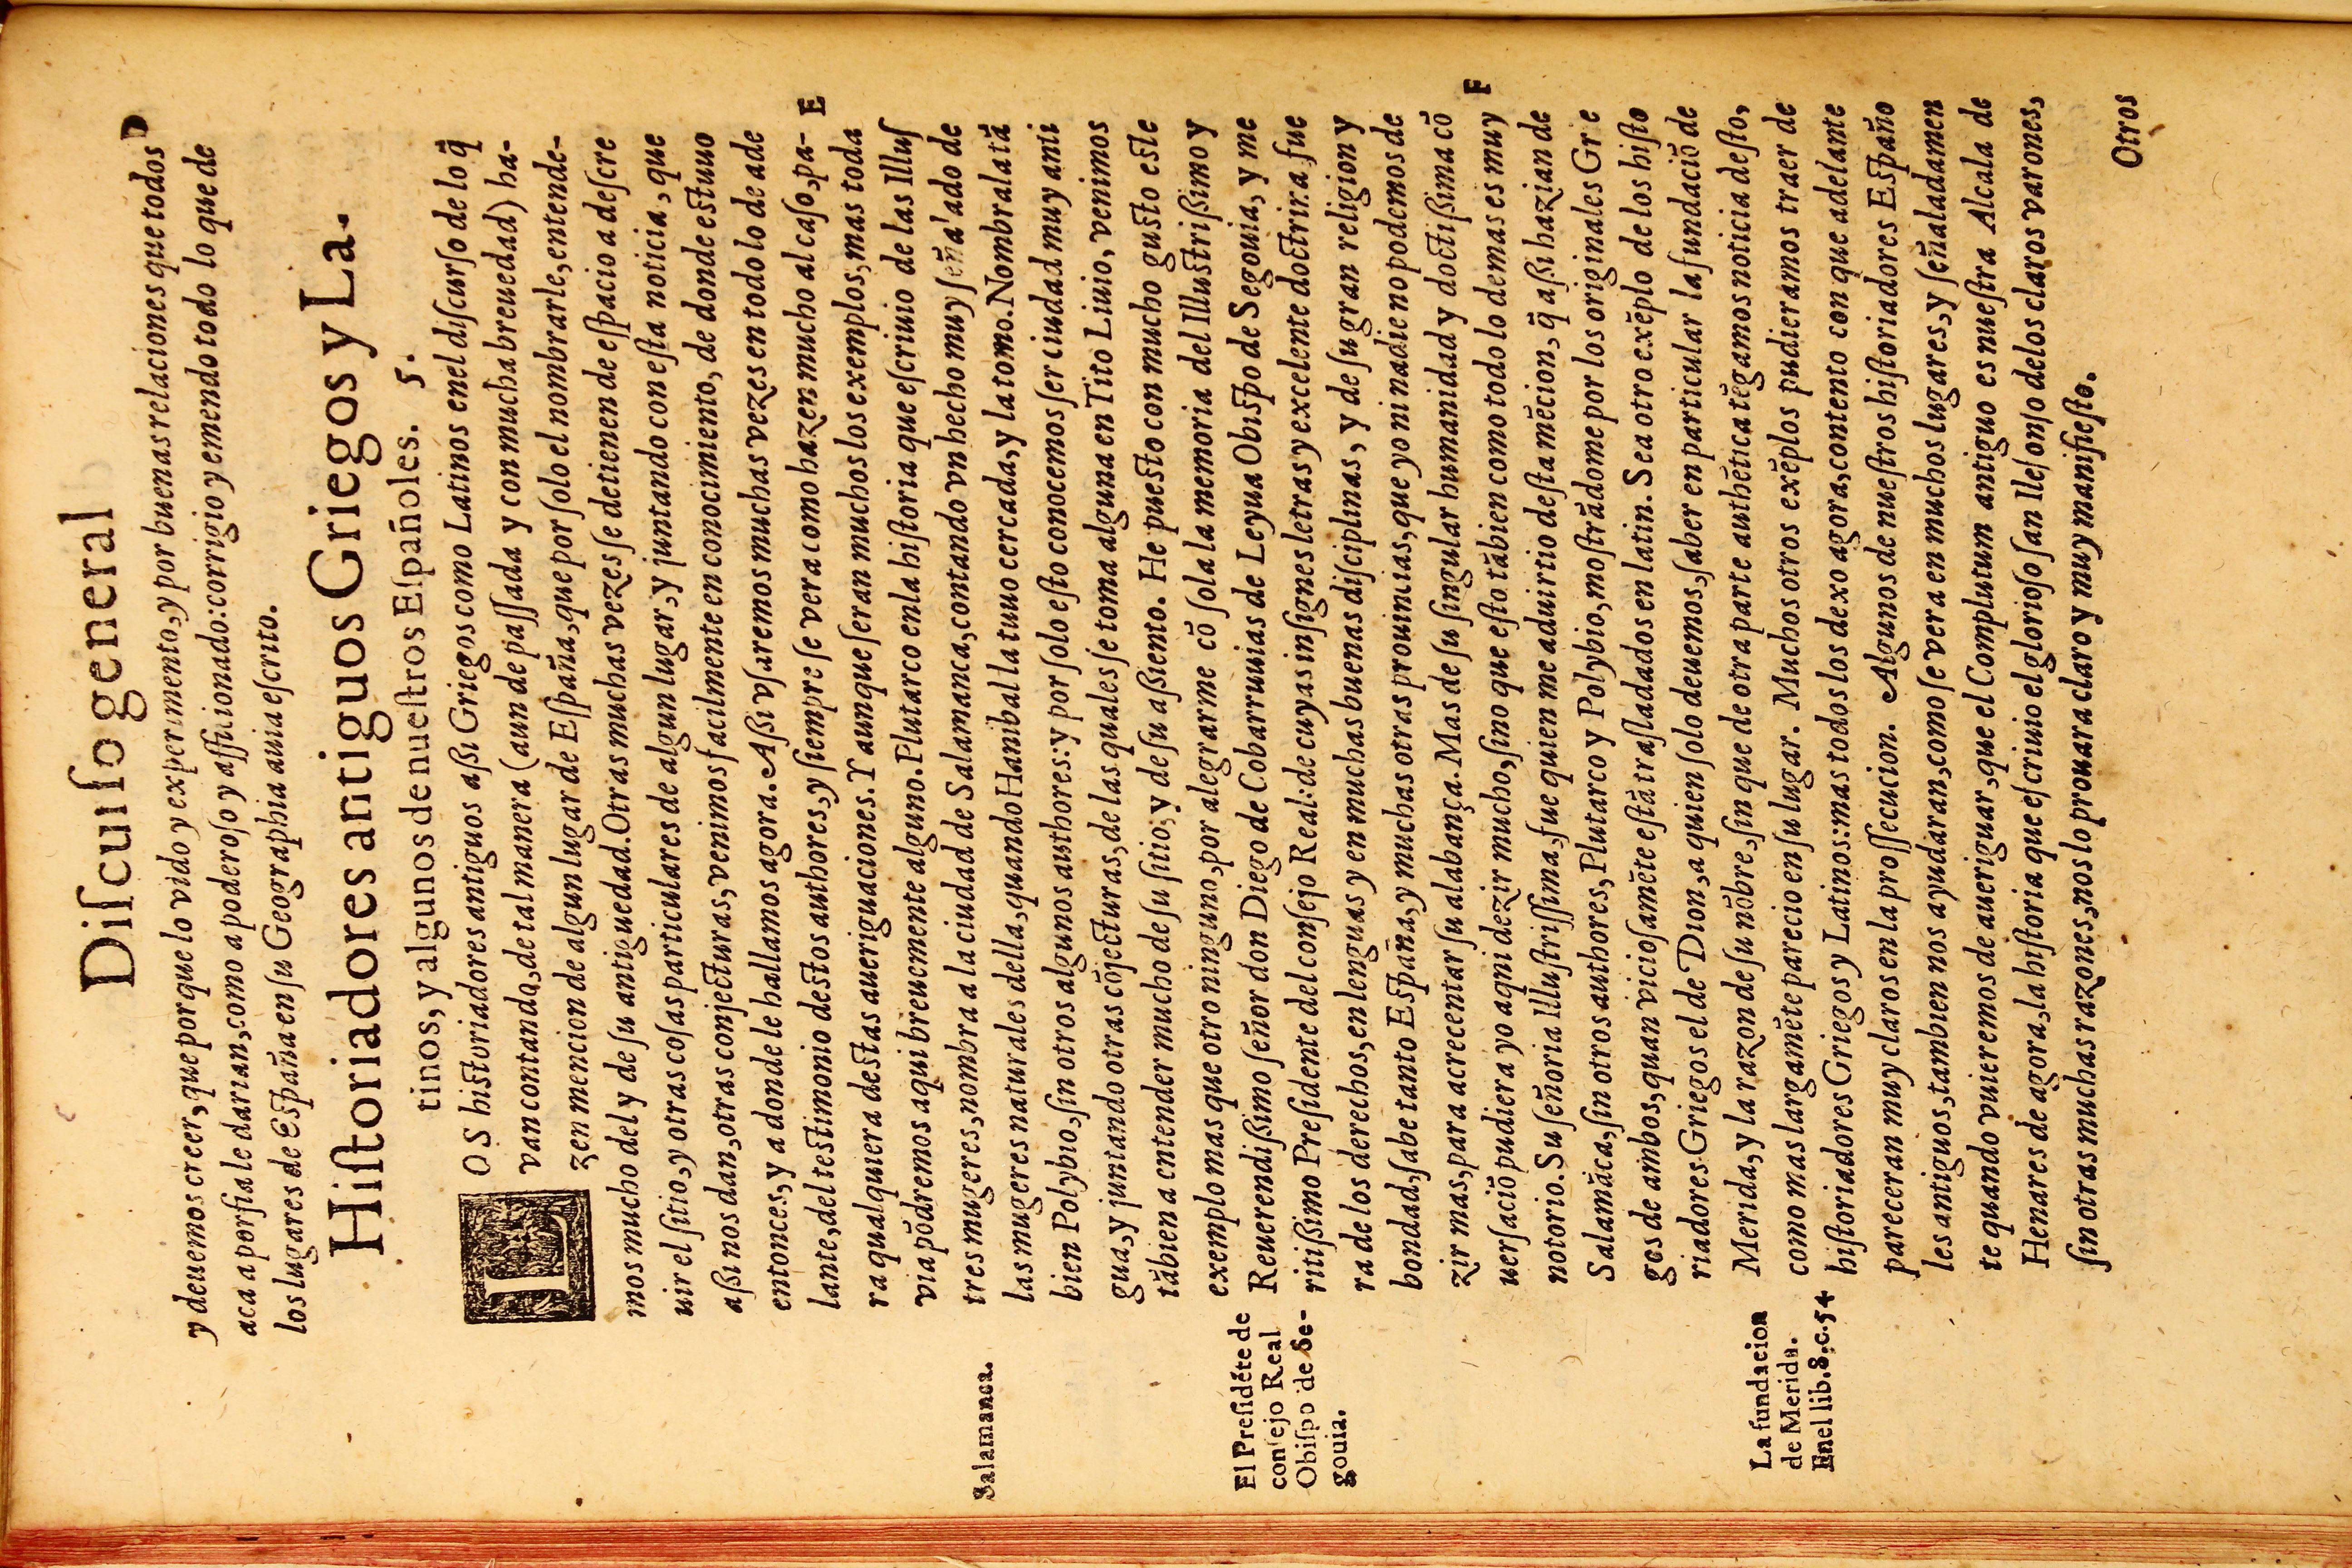 Diſcurſo general
y deuemos creer, que porque lo vido y experimento, y por buenas relaciones que todos D
aca a porfia le darian, como a poderoſo y afficionado: corrigio y emendo todo lo que de
los lugares de Eſpaña en ſu Geographia auia eſcrito.
Hiſtoriadores antiguos Griegos y La-
tinos, y algunos de nueſtros Eſpañoles. 5.
LOS hiſtoriadores antiguos aſsi Griegos como Latinos en el diſcurſo de lo q̃
van contando, de tal manera (aun de paſſada y con mucha breuedad) ha-
zen mencion de algun lugar de Eſpaña, que por ſolo el nombrarle, entende-
mos mucho del y de ſu antiguedad. Otras muchas vezes ſe detienen de eſpacio a deſcre
uir el ſitio, y otras coſas particulares de algun lugar, y juntando con eſta noticia, que
aſsi nos dan, otras conjecturas, venimos facilmente en conocimiento, de donde eſtuuo
entonces, y a donde le hallamos agora. Aſsi vſaremos muchas vezes en todo lo de ade
lante, del teſtimonio deſtos authores, y ſiempre ſe vera como hazen mucho al caſo, pa- E
ra qualquiera deſtas aueriguaciones. Y aunque ſeran muchos los exemplos, mas toda
via põdremos aqui breuemente alguno. Plutarco en la hiſtoria que eſcriuio de las Illuſ
tres mugeres, nombra a la ciudad de Salamanca, contando vn hecho muy ſeñalado de
Salamanca.
las mugeres naturales della, quando Hanibal la tuuo cercada, y la tomo. Nombrala tã
bien Polybio, ſin otros algunos authores: y por ſolo eſto conocemos ſer ciudad muy anti
gua, y juntando otras cõjecturas, de las quales ſe toma alguna en Tito Liuio, venimos
tãbien a entender mucho de ſu ſitio, y de ſu aſsiento. He pueſto con mucho guſto eſte
exemplo mas que otro ninguno, por alegrarme cõ ſola la memoria del Illuſtriſsimo y
Reuerendiſsimo ſeñor don Diego de Cobarruuias de Leyua Obiſpo de Segouia, y me
ritiſsimo Preſidente del conſejo Real: de cuyas inſignes letras y excelente doctrina fue
El Preſidẽte de
conſejo Real
Obiſpo de Se-
gouia.
ra de los derechos, en lenguas y en muchas buenas diſciplinas, y de ſu gran religion y
bondad, ſabe tanto Eſpaña, y muchas otras prouincias, que yo ni nadie no podemos de
zir mas, para acrecentar ſu alabança. Mas de ſu ſingular humanidad y doctiſsima cõ
uerſaciõ pudiera yo aqui dezir mucho, ſino que eſto tãbien como todo lo demas es muy F
notorio. Su ſeñoria Illuſtriſſima, fue quien me aduirtio deſta mẽcion, q̃ aſsi hazian de
Salamãca, ſin otros authores, Plutarco y Polybio, moſtrãdome por los originales Grie
gos de ambos, quan vicioſamẽte eſtã traſladados en latin. Sea otro exẽplo de los hiſto
riadores Griegos el de Dion, a quien ſolo deuemos, ſaber en particular la fundaciõ de
Merida, y la razon de ſu nõbre, ſin que de otra parte authẽtica tẽgamos noticia deſto,
como mas largamẽte parecio en ſu lugar. Muchos otros exẽplos pudieramos traer de
La fundacion
de Merida.
En el lib. 8. c. 54
hiſtoriadores Griegos y Latinos: mas todos los dexo agora, contento con que adelante
pareceran muy claros en la proſſecucion. Algunos de nueſtros hiſtoriadores Eſpaño
les antiguos, tambien nos ayudaran, como ſe vera en muchos lugares, y ſeñaladamen
te quando vuieremos de aueriguar, que el Complutum antiguo es nueſtra Alcala de
Henares de agora, la hiſtoria que eſcriuio el glorioſo ſan Ileſonſo de los claros varones,
ſin otras muchas razones, nos lo prouara claro y muy manifieſto.
Otros